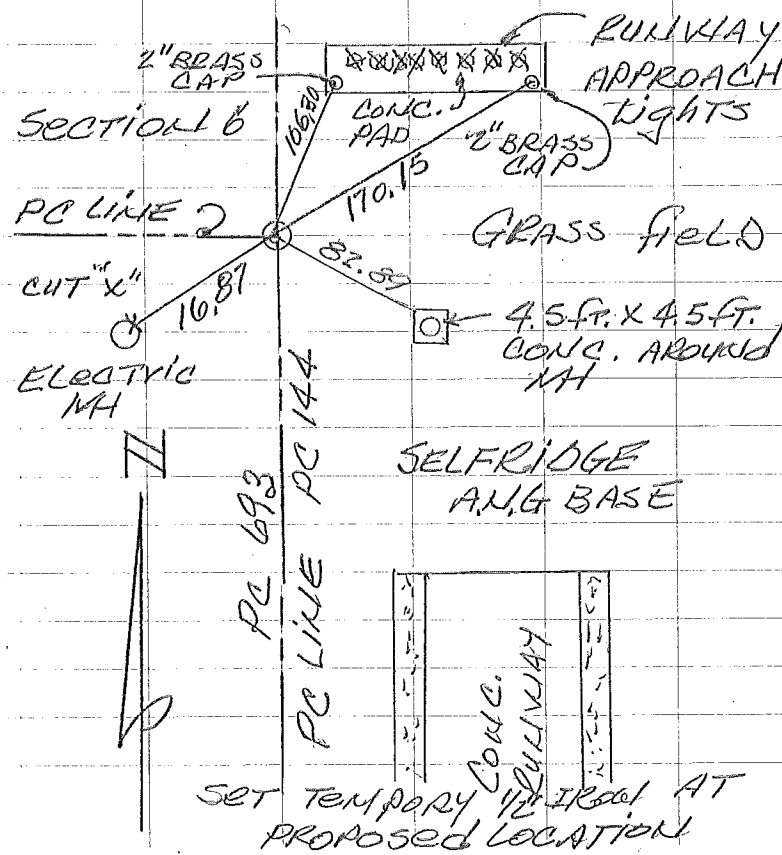 RUNWAY
APPROACH
LIGHTS
2" BRASS
CAP
CONC.
PAD
2" BRASS
CAP
SECTION 6
170.15
PC LINE
GRASS FIELD
CUT "X"
16.87
82.89
4.5 FT. X 4.5 FT.
CONC. AROUND
MH
ELECTRIC
MH
N
PC 693
PC LINE PC 144
SELFRIDGE
A.N.G BASE
CONC.
RUNWAY
SET TEMPORY 1/2" IRON AT
PROPOSED LOCATION